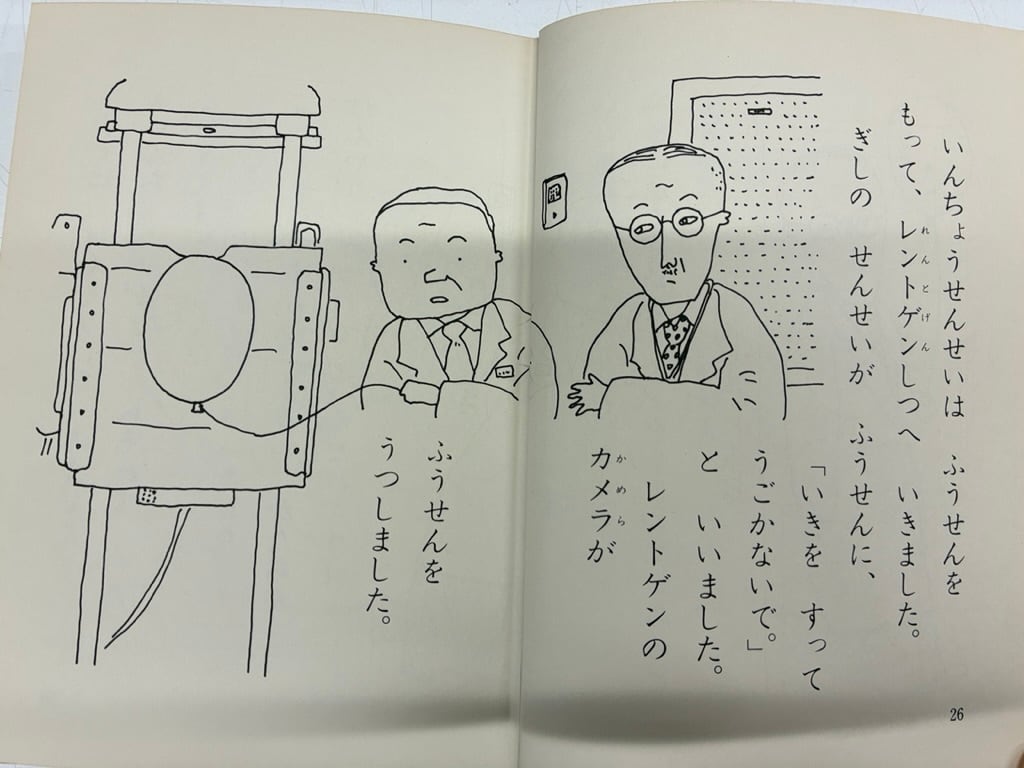 いんちょうせんせいは　ふうせんを
もって、レントゲンしつへ　いきました。
れんとげん
ぎしの　せんせいが　ふうせんに、
「いきを　すって
うごかないで。」
と　いいました。
レントゲンの
カメラが
かめら
ふうせんを
うつしました。
26